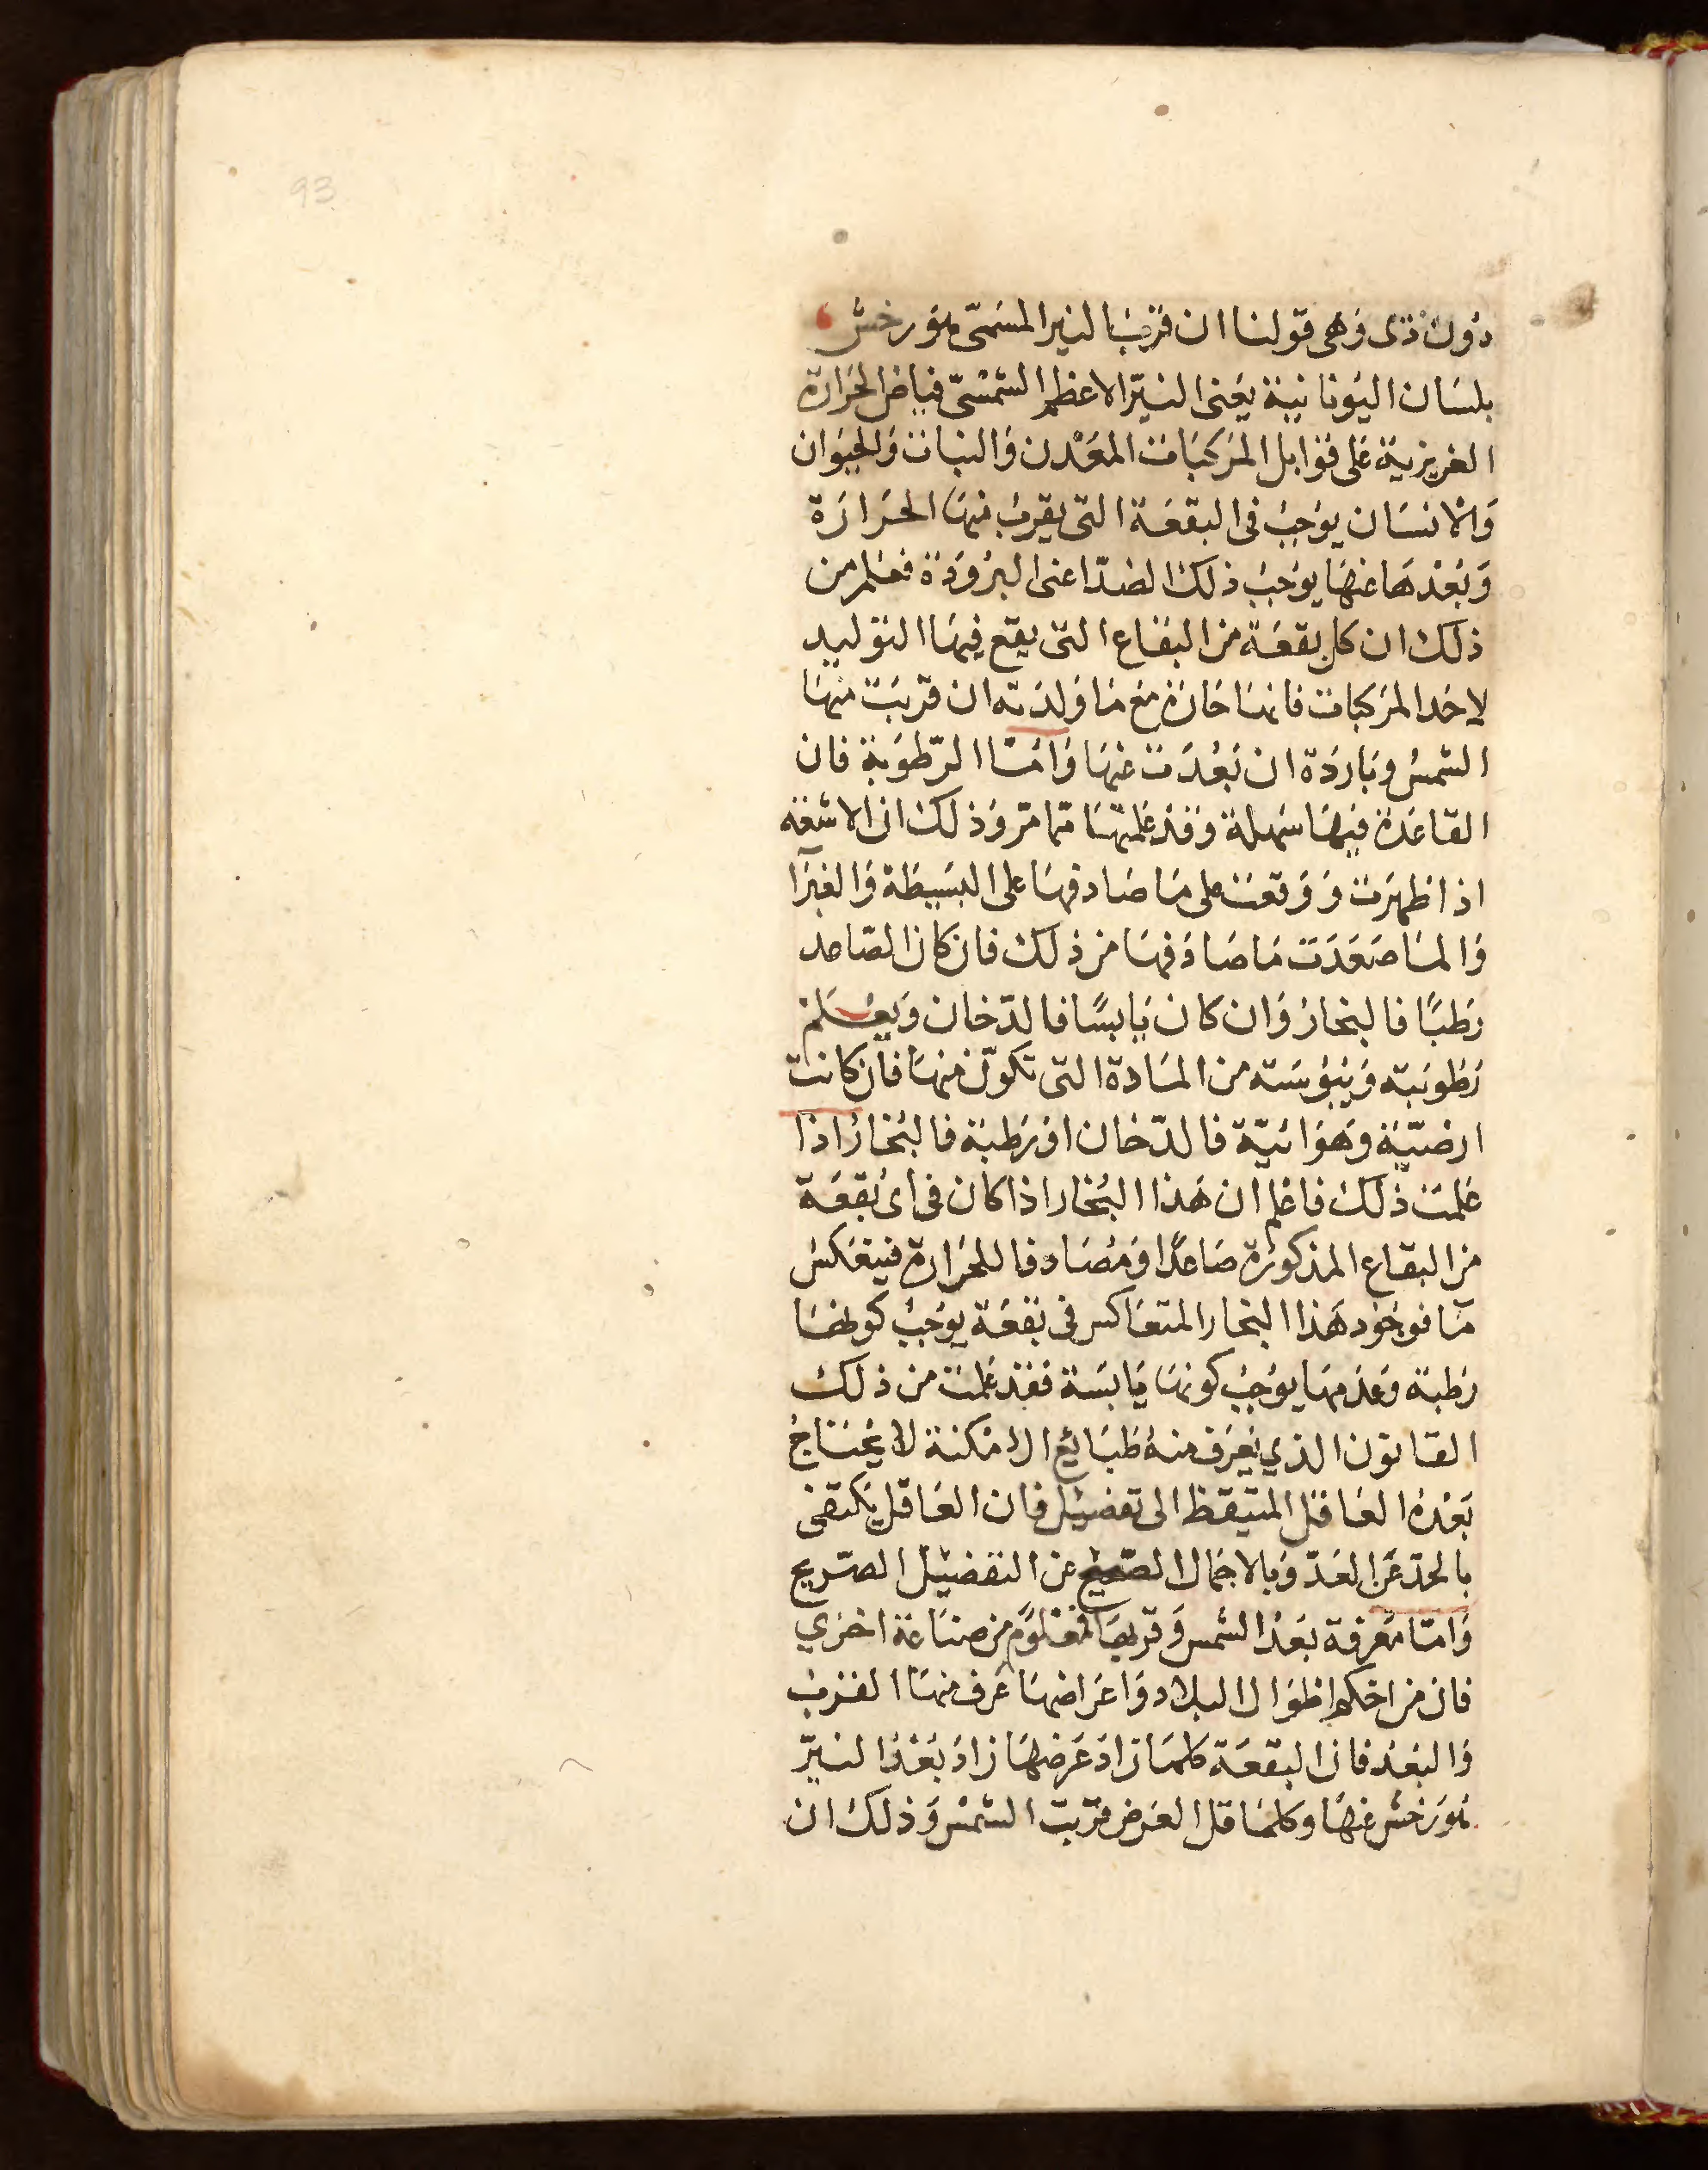 93
دون ذى وهى قولنا ان قرب النير المسمى هورخش
بلسان اليونانية يعنى النير الاعظم الشمسى فياض الحرارة
الغريزية على قوابل المركبات المعدن والنبات والحيوان
والانسان يوجب فى البقعة التى يقرب منها الحرارة
وبعدها عنها يوجب ذلك الضد اعنى البرودة فعلم من
ذلك ان كل بقعة من البقاع التى يقع فيها التوليد
لاحد المركبات فانها حارة مع ما ولدته ان قربت منها
الشمس وباردة ان بعدت عنها واما الرطوبة فان
القاعدة فيها سهلة وقد علمتها مما مر وذلك ان الاشعة
اذا ظهرت ووقعت على ما صادفها على البسيطة والغبرا
والما صعدت ما صادفها من ذلك فان كان الصاعد
رطبا فالبخار وان كان يابسا فالدخان ويعلم
رطوبته ويبوسته من المادة التى تكون منها فان كانت
ارضية وهوائية فالدخان او رطبة فالبخار اذا
علمت ذلك فاعلم ان هذا البخار اذا كان فى اى بقعة
من البقاع المذكورة صاعدا ومصادفا للحرارة فينعكس
ما فوجود هذا البخار المتعاكس فى بقعة يوجب كونها
رطبة وعدمها يوجب كونها يابسة فقد علمت من ذلك
القانون الذي يعرف منه طبائع الامكنة لا يحتاج
بعده العاقل المتيقظ الى تفصيل فان العاقل يكتفى
بالحد عن العد وبالاجمال الصحيح عن التفصيل الصريح
واما معرفة بعد الشمس وقربها فمعلوم من صناعة اخرى
فان من احكم اطوال البلاد واعراضها عرف منها القرب
والبعد فان البقعة كلما زاد عرضها زاد بعد النير
هورخش عنها وكلما قل العرض قربت الشمس وذلك ان